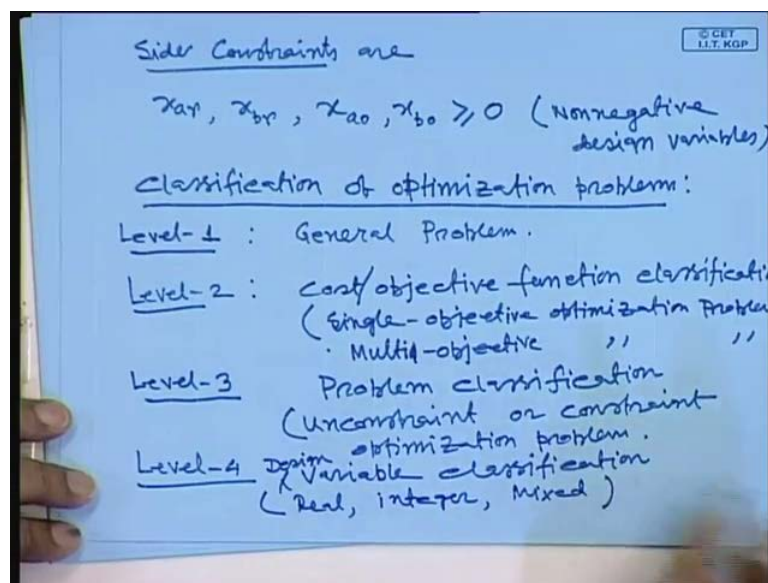 © CET
I.I.T. KGP
Sider Constraints are
xar, xbr, xao, xbo ≥ 0 (Nonnegative
design variables)
Classification of optimization problem:
Level-1 : General Problem.
Level-2 : Cost/objective function classificati
(Single-objective optimization Problem
Multi-objective ,, ,,
Level-3 Problem classification
(Unconstraint or constraint
optimization problem.
Level-4 Design Variable classification
(Real, integer, Mixed)